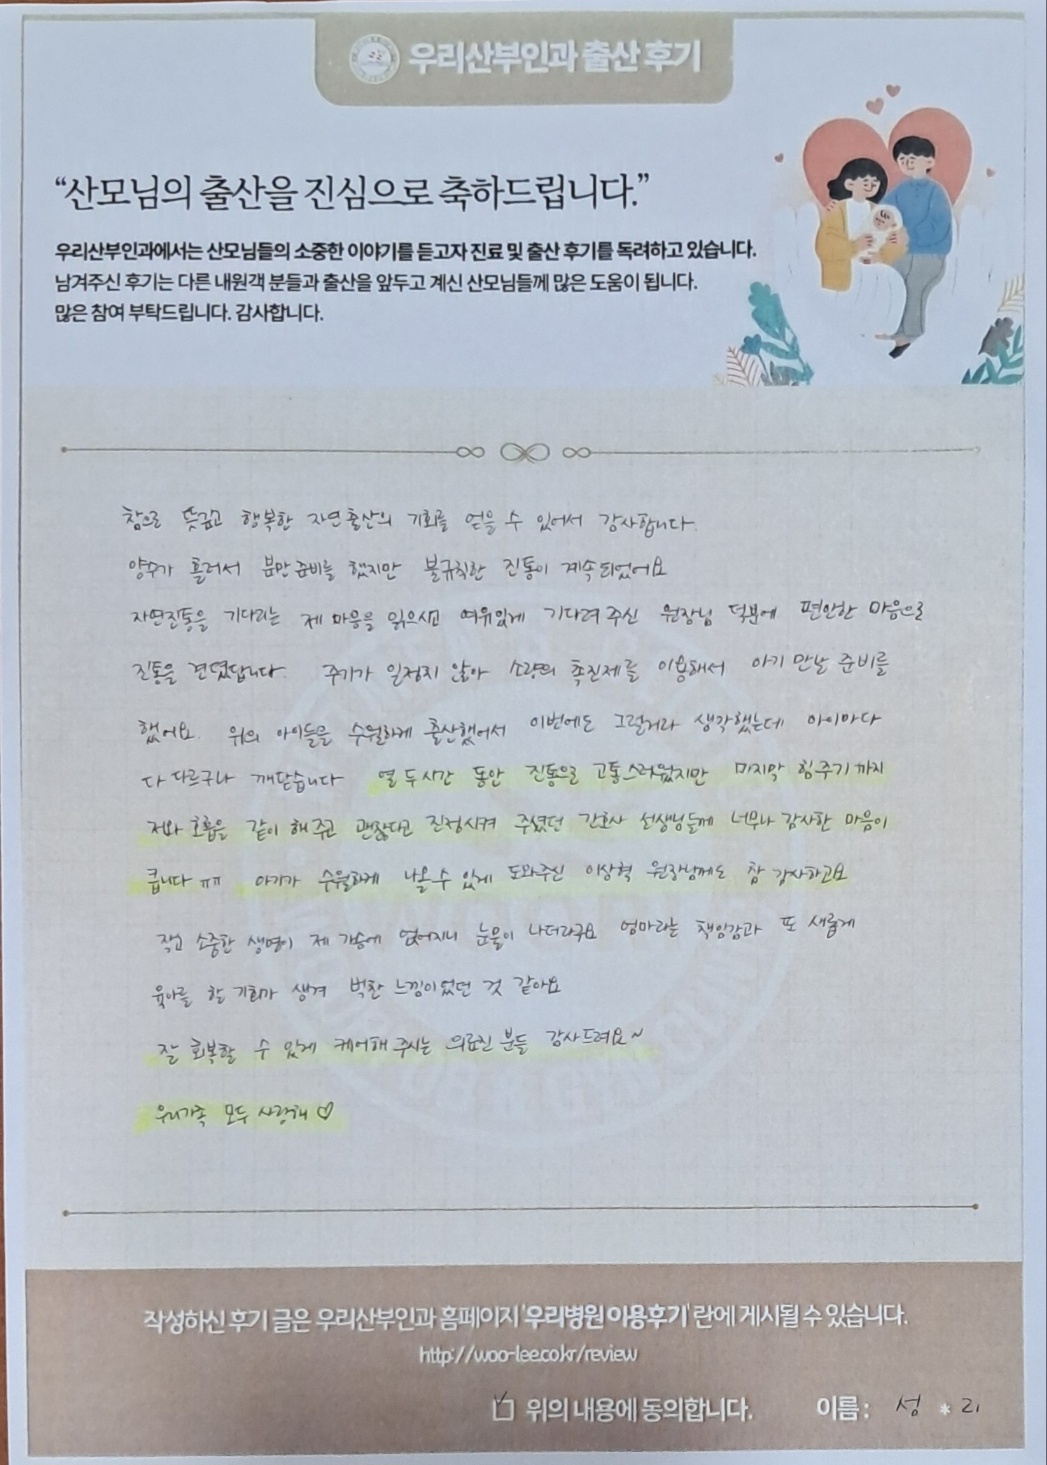 우리산부인과 출산 후기
“산모님의 출산을 진심으로 축하드립니다.”
우리산부인과에서는 산모님들의 소중한 이야기를 듣고자 진료 및 출산 후기를 독려하고 있습니다.
남겨주신 후기는 다른 내원객 분들과 출산을 앞두고 계신 산모님들께 많은 도움이 됩니다.
많은 참여 부탁드립니다. 감사합니다.
참으로 뜻깊고 행복한 자연출산의 기회를 얻을 수 있어서 감사합니다.
양수가 흘러서 분만준비를 했지만 불규칙한 진통이 계속되었어요
자연진통을 기다리는 제 마음을 읽으시고 여유있게 기다려 주신 원장님 덕분에 편안한 마음으로
진통을 견뎠답니다. 주기가 일정치 않아 소량의 촉진제를 이용해서 아기 만날 준비를
했어요. 위의 아이들을 수월하게 출산했어서 이번에도 그럴거라 생각했는데 아이마다
다 다르구나 깨닫습니다 열 두시간 동안 진통으로 고통스러웠지만 마지막 힘주기까지
저와 호흡을 같이 해주고 괜찮다고 진정시켜 주셨던 간호사 선생님들께 너무나 감사한 마음이
큽니다 ㅠㅠ 아기가 수월하게 나올 수 있게 도와주신 이상혁 원장님께도 참 감사하고요
작고 소중한 생명이 제 가슴에 얹어지니 눈물이 나더라구요 엄마라는 책임감과 또 새롭게
육아를 할 기회가 생겨 벅찬 느낌이었던 것 같아요
잘 회복할 수 있게 케어해 주시는 의료진 분들 감사드려요~
우리가족 모두 사랑해 ♡
작성하신 후기 글은 우리산부인과 홈페이지 '우리병원 이용후기' 란에 게시될 수 있습니다.
http://woo-lee.co.kr/review
위의 내용에 동의합니다. 이름 : 성 * 리